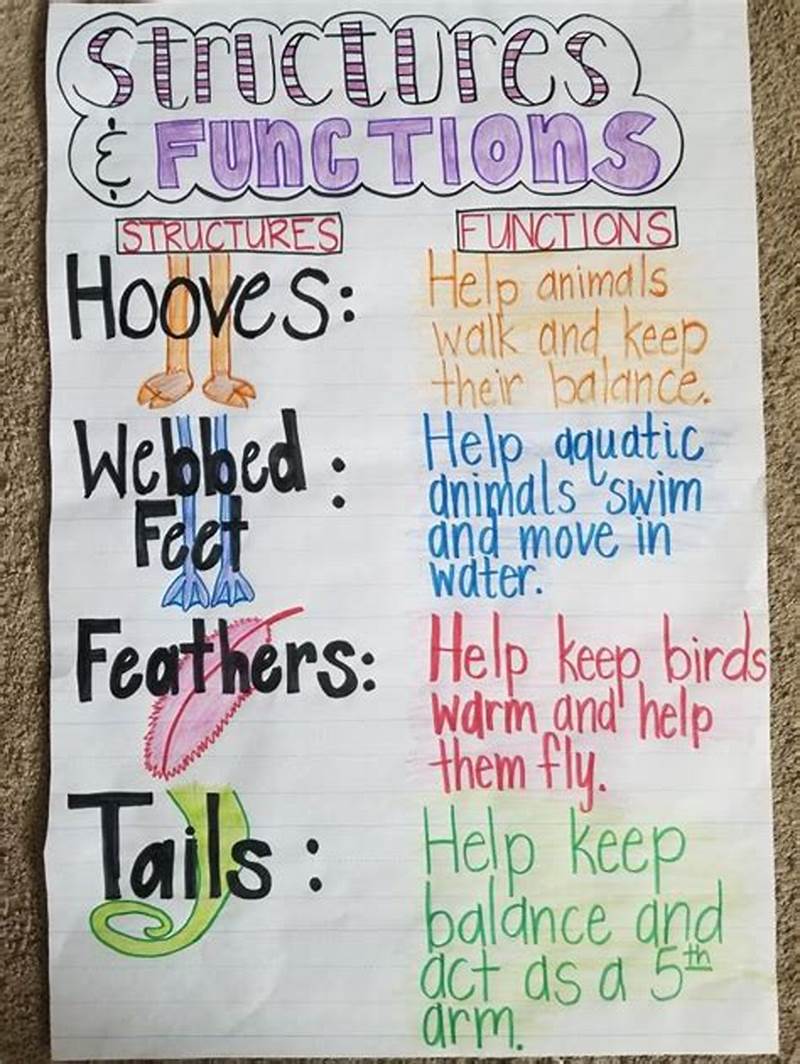 Structures
& Functions
STRUCTURES
FUNCTIONS
Hooves:
Help animals
walk and keep
their balance.
Webbed :
Feet
Help aquatic
animals swim
and move in
water.
Feathers:
Help keep birds
warm and help
them fly.
Tails :
Help keep
balance and
act as a 5th
arm.